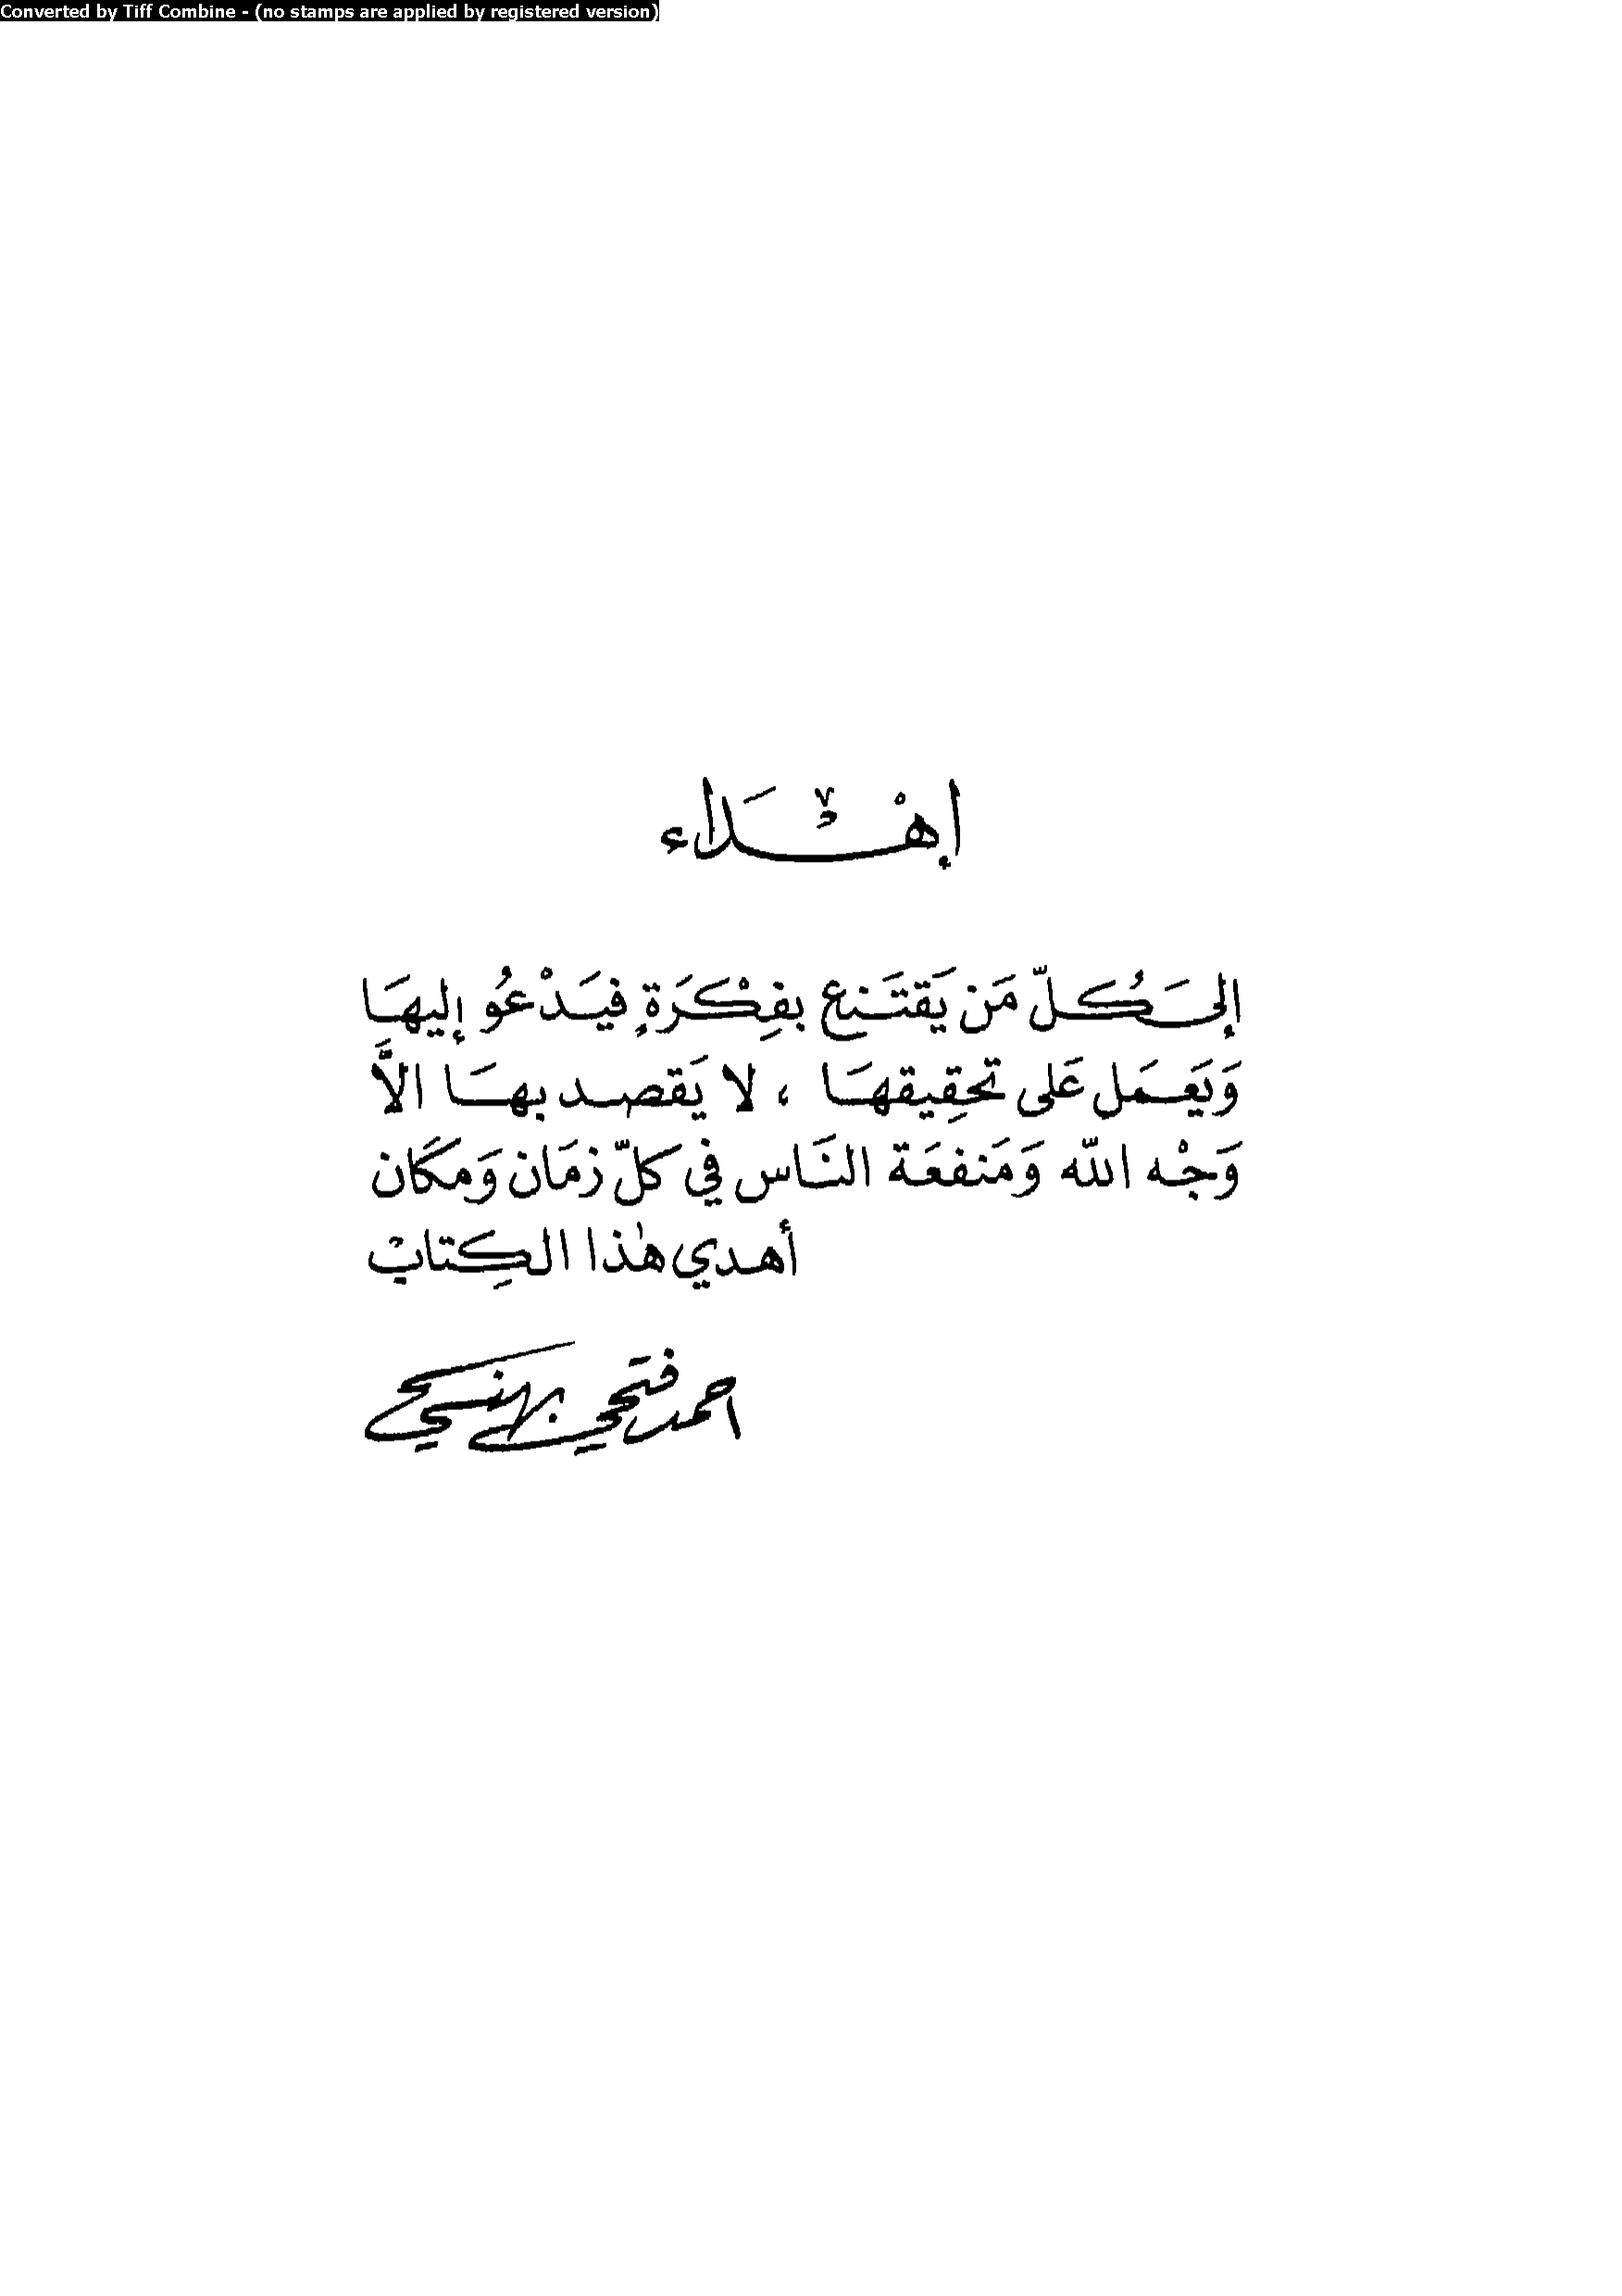 Converted by Tiff Combine - (no stamps are applied by registered version)
إهْدَاء
إلىَ كُلّ مَن يَقتَنع بفِكْرَةٍ فيَدْعُو إليهَا
وَيَعمَل عَلى تحقِيقهَا ، لا يَقصد بهَا الاَّ
وَجْه اللّه وَمَنفعَة النَاس في كلّ زمَان وَمكَان
أهدي هٰذا الكِتابْ
احمد فتحي بهنسي